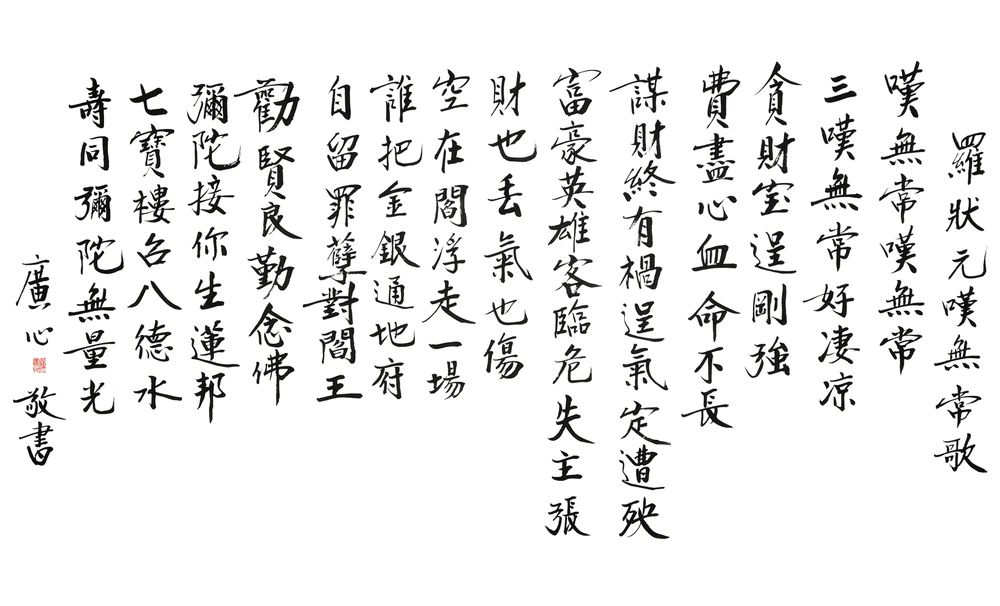 羅狀元嘆無常歌
嘆無常嘆無常
三嘆無常好凄凉
貪財室逞剛強
費盡心血命不長
謀財終有禍逞氣定遭殃
富豪英雄客臨危失主張
財也丢氣也傷
空在閻浮走一場
誰把金銀通地府
自留罪孽對閻王
勸賢良勤念佛
彌陀接你生蓮邦
七寶樓台八德水
壽同彌陀無量光
廣心
敬書